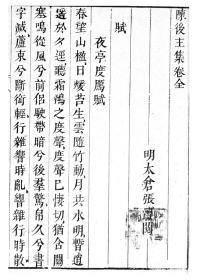 陳後主集卷全
明太倉張溥閱
賦
夜亭度鴈賦
春望山楹日暖苔生雲隨竹動月共水明暫逍
遙於夕逕聽霜鴻之度聲度聲已悽切猶含關
塞鳴從風兮前侶駛帶暗兮後羣驚帛久兮書
字滅蘆束兮斷銜輕行雜響時亂響雜行時散